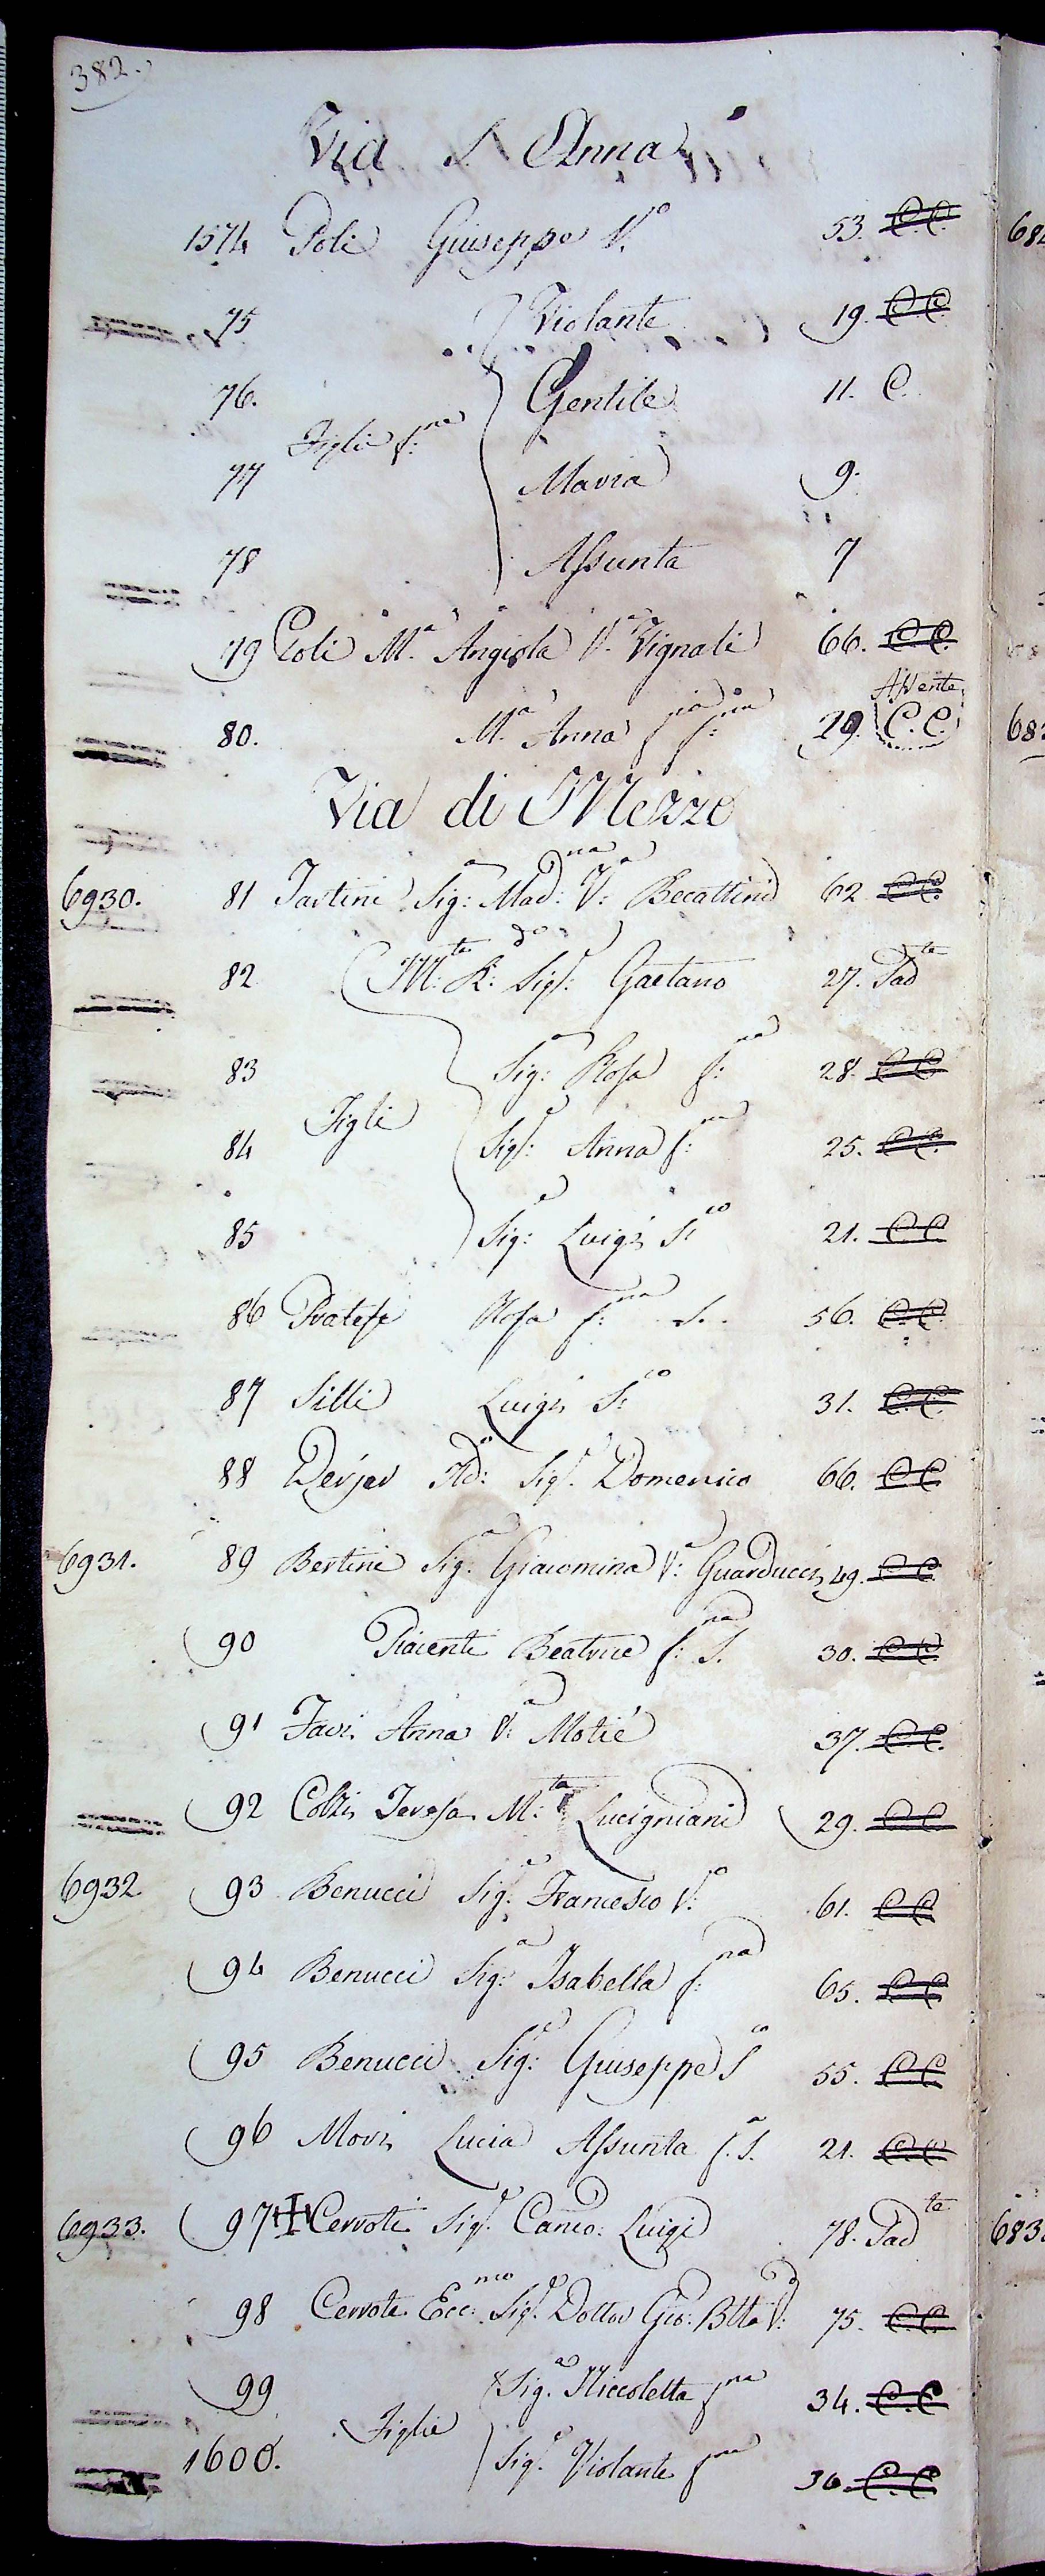 382.
Via S. Anna
1574 Poli Giuseppe V.o 53. C.C.
75 Violante 19. C.C.
76. Gentile 11. C.
Figlie f:ne
77 Maria 9.
78 Assunta 7
79 Poli M.a Angiola V.a Vignali 66. C.C.
Assente
80. M.a Anna f:na 29. C.C.
Via di Mezzo
6930. 81 Tartini Sig:a Mad:na V:a Becattini 62 C.C.
82 M:to R:do Sig:r Gaetano 27. Sad:te
83 Sig:a Rosa f:na 28. C.C.
Figli
84 Sig:a Anna f:na 25. C.C.
85 Sig:e Luigi S:co 21. C.C.
86 Pratesi Rosa f:na S. 56. C.C.
87 Silli Luigi S:co 31. C.C.
88 Sig:r Domenico 66. C.C.
6931. 89 Bertini Sig:a Giacomina V:a Guarducci 49. C.C.
90 Piacenti Beatrice f:na S. 30. C.C.
91 Favi Anna V:a 37. C.C.
92 Colzi Teresa M:ta Lucigniani 29. C.C.
6932. 93 Benucci Sig:e Francesco V:o 61. C.C.
94 Benucci Sig:a Isabella f:na 65. C.C.
95 Benucci Sig:e Giuseppe S:co 55. C.C.
96 Mori Lucia Assunta f:a S. 21. C.C.
6933. 97 Cervoti Sig:r Canco: Luigi 78. Sad:te
98 Cervoti Ecc:mo Sig:r Dottor Gio: Btta V:o 75. C.C.
99 Sig:a Niccoletta f:na 34. C.C.
Figlie
1600. Sig:a Violante f:na 36. C.C.